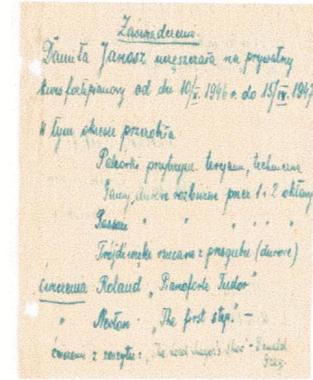 Zaświadczenie.
Danuta Janosz uczęszczała na prywatny
kurs fortepianowy od dn 10/X. 1946 r. do 15/IV. 1947
W tym okresie przerobiła
Palcówki techniczne
Gamy durowe rozbieżne przez 1 i 2 oktawy
Pasaże " " " " "
Trójdźwięki rzucane z przegubu (durowe)
ćwiczenia Roland "Pianoforte Tudor"
" "The first step." -
ćwiczenia z zeszytu: "The Lord Mayor's Show" -